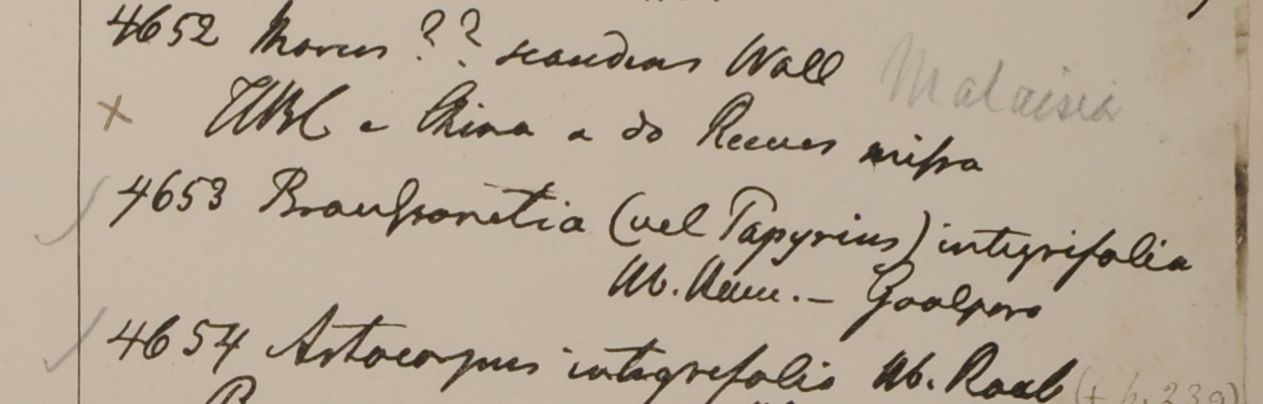 4652 Morus ?? scandens Wall Malaisia
x HBC e China a do Reeves missa
4653 Broussonetia (vel Papyrius) integrifolia
Hb. Ham. - Goalpara
4654 Artocarpus integrifolia Hb. Roxb (+ p. 239)